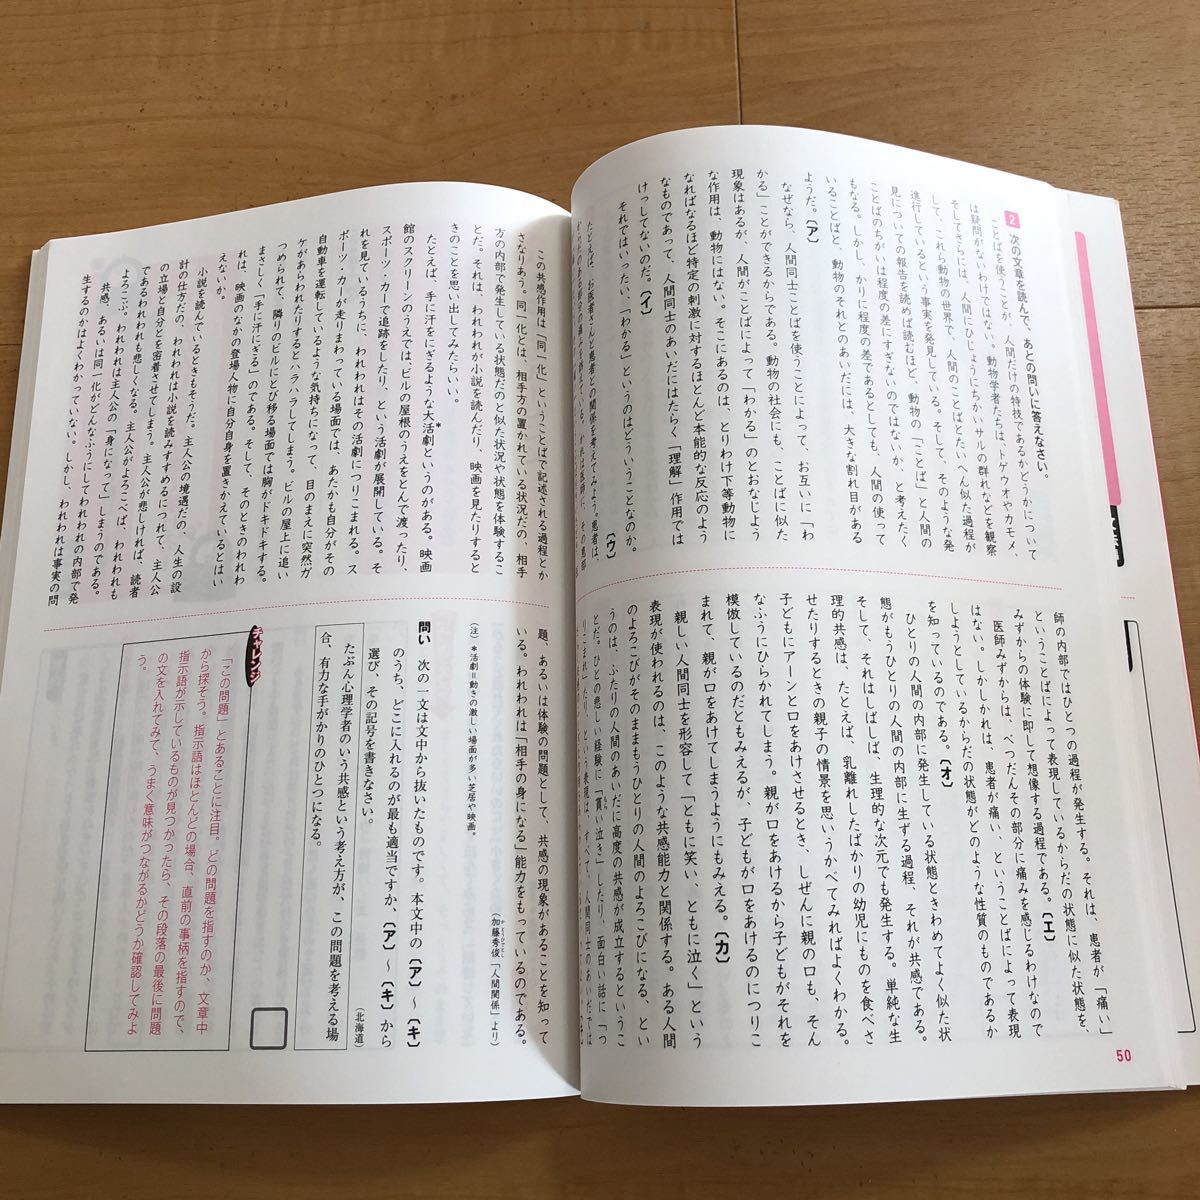 2 次の文章を読んで、あとの問いに答えなさい。
ことばを使うことが、人間だけの特技であるかどうかについて
は疑問がないわけではない。動物学者たちは、トゲウオやカモメ、
そしてさらには、人間にひじょうにちかいサルの群れなどを観察
して、これら動物の世界で、人間のことばとたいへん似た過程が
進行しているという事実を発見している。そして、そのような発
見についての報告を読めば読むほど、動物の「ことば」と人間の
ことばのちがいは程度の差にすぎないのではないか、と考えたく
もなる。しかし、かりに程度の差であるとしても、人間の使って
いることばと、動物のそれとのあいだには、大きな割れ目がある
ようだ。〔ア〕
なぜなら、人間同士ことばを使うことによって、お互いに「わ
かる」ことができるからである。動物の社会にも、ことばに似た
現象はあるが、人間がことばによって「わかる」のとおなじよう
な作用は、動物にはない。そこにあるのは、とりわけ下等動物に
なればなるほど特定の刺激に対するほとんど本能的な反応のよう
なものであって、人間同士のあいだにはたらく「理解」作用では
けっしてないのだ。〔イ〕
それではいったい、「わかる」というのはどういうことなのか。
〔ウ〕
たとえば、お医者さんと患者との関係を考えてみよう。患者は、
師の内部ではひとつの過程が発生する。それは、患者が「痛い」
ということばによって表現しているからだの状態に似た状態を、
みずからの体験に即して想像する過程である。〔エ〕
医師みずからは、べつだんその部分に痛みを感じるわけなので
はない。しかしかれは、患者が痛い、ということばによって表現
しようとしているからだの状態がどのような性質のものであるか
を知っているのである。〔オ〕
ひとりの人間の内部に発生している状態ときわめてよく似た状
態がもうひとりの人間の内部に生ずる過程、それが共感である。
そして、それはしばしば、生理的な次元でも発生する。単純な生
理的共感は、たとえば、乳離れしたばかりの幼児にものを食べさ
せたりするときの親子の情景を思いうかべてみればよくわかる。
子どもにアーンと口をあけさせるとき、しぜんに親の口も、そん
なふうにひらかれてしまう。親が口をあけるから子どもがそれを
模倣しているのだともみえるが、子どもが口をあけるのにつりこ
まれて、親が口をあけてしまうようにもみえる。〔カ〕
親しい人間同士を形容して「ともに笑い、ともに泣く」という
表現が使われるのは、このような共感能力と関係する。ある人間
のよろこびがそのままもうひとりの人間のよろこびになる、とい
うのは、ふたりの人間のあいだに高度の共感が成立するというこ
とだ。ひとの悲しい経験に「貰い泣き」したり、面白い話に「つ
りこまれ」たり、という表現は、すべて、人間同士のあいだでは
50
この共感作用は「同一化」ということばで記述される過程とか
さなりあう。同一化とは、相手方の置かれている状況だの、相手
方の内部で発生している状態だのと似た状況や状態を体験するこ
とだ。それは、われわれが小説を読んだり、映画を見たりすると
きのことを思い出してみたらいい。
たとえば、手に汗をにぎるような大活劇*というのがある。映画
館のスクリーンのうえでは、ビルの屋根のうえをとんで渡ったり、
スポーツ・カーで追跡をしたり、という活劇が展開している。そ
れを見ているうちに、われわれはその活劇につりこまれる。ス
ポーツ・カーが走りまわっている場面では、あたかも自分がその
自動車を運転しているような気持ちになって、目のまえに突然ガ
ケがあらわれたりするとハラハラしてしまう。ビルの屋上に追い
つめられて、隣りのビルにとび移る場面では胸がドキドキする。
まさしく「手に汗にぎる」のである。そして、そのときのわれわ
れは、映画のなかの登場人物に自分自身を置きかえているとはい
えないか。
小説を読んでいるときもそうだ。主人公の境遇だの、人生の設
計の仕方だの、われわれは小説を読みすすめるにつれて、主人公
の立場と自分とを密着させてしまう。主人公が悲しければ、読者
であるわれわれも悲しくなる。主人公がよろこべば、われわれも
よろこぶ。われわれは主人公の「身になって」しまうのである。
共感、あるいは同一化がどんなふうにしてわれわれの内部で発
生するのかはよくわかっていない。しかし、われわれは事実の問
題、あるいは体験の問題として、共感の現象があることを知って
いる。われわれは「相手の身になる」能力をもっているのである。
（加藤秀俊「人間関係」より）
（注）＊活劇＝動きの激しい場面が多い芝居や映画。
問い 次の一文は文中から抜いたものです。本文中の〔ア〕～〔キ〕
のうち、どこに入れるのが最も適当ですか、〔ア〕～〔キ〕から
選び、その記号を書きなさい。
（北海道）
たぶん心理学者のいう共感という考え方が、この問題を考える場
合、有力な手がかりのひとつになる。
チャレンジ
「この問題」とあることに注目。どの問題を指すのか、文章中
から探そう。指示語はほとんどの場合、直前の事柄を指すので、
指示語が示しているものが見つかったら、その段落の最後に問題
の文を入れてみて、うまく意味がつながるかどうか確認してみよ
う。